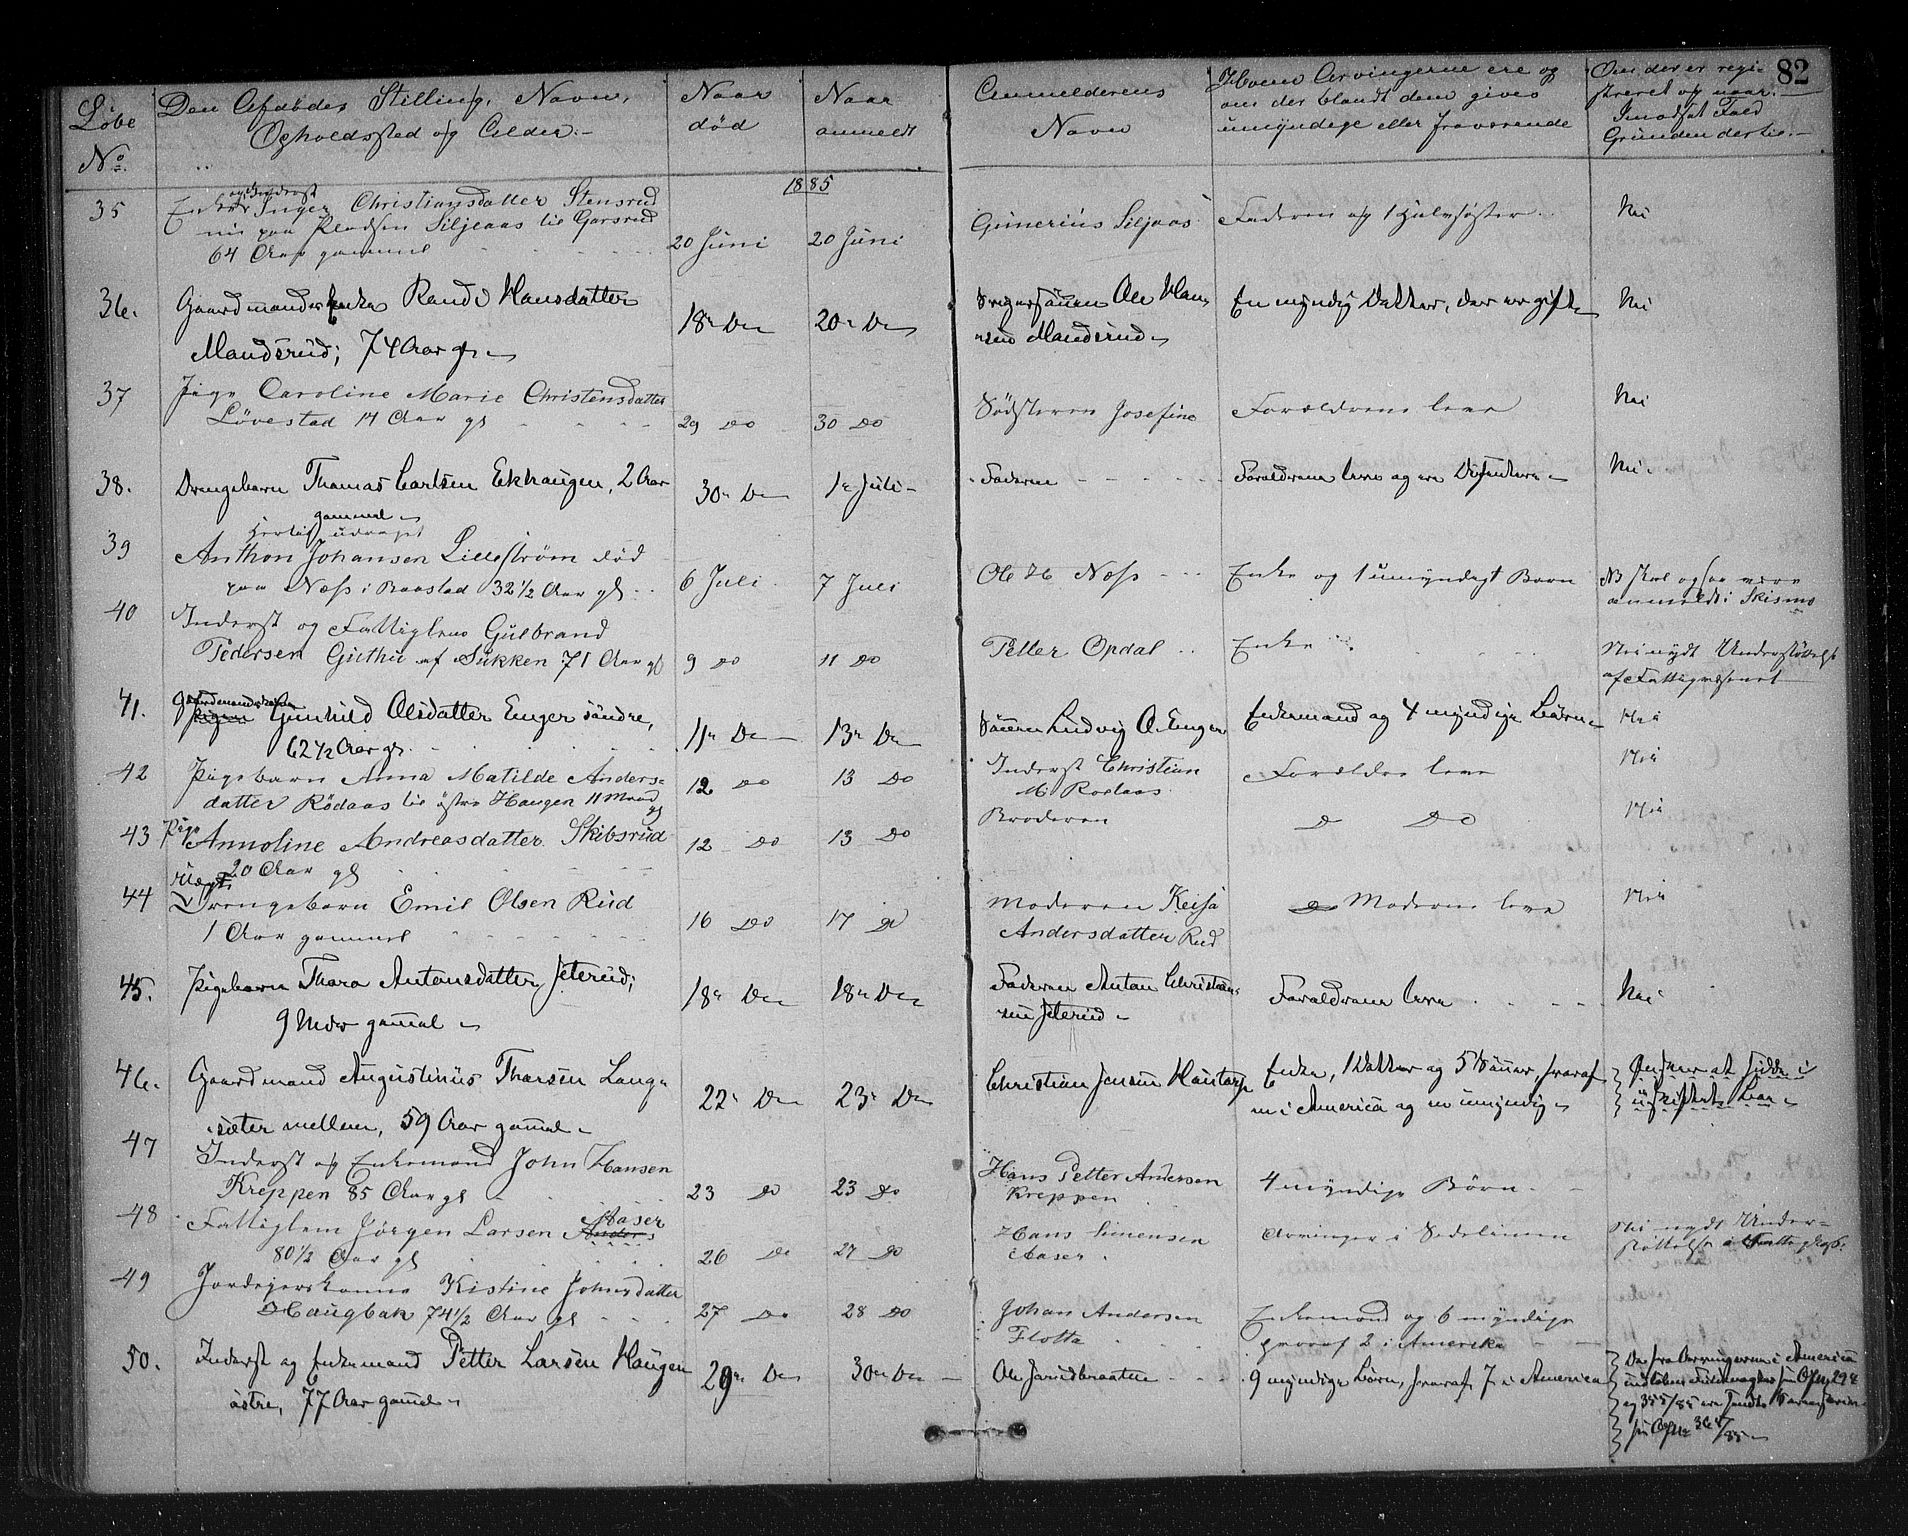 82
Løbe
No.
Den Afdødes Stilling, Navn,
Opholdssted og Alder.
Naar
død
Naar
anmeldt
Anmelderens
Navn
Hvem Arvingerne ere og
om der blandt dem gives
umyndige eller fraværende
Om der er regi-
streret og naar.
Imodsat Fald
Grunden dertil.
1885
35
Inger Christiansdatter Stensrud
nu paa Pladsen Siljeaas til Garsrud
64 Aar gammel
20 Juni
20 Juni
Gunerius Siljaas
Faderen og 1 Halvsøster
Nei
36.
Gaardmandsenke Randi Hansdatter
Mandsrud; 74 Aar gl.
18de Do
20de Do
Svigersønnen Ole Han-
sen Mandsrud
En myndig Datter, der er gift
Nei
37
Pige Caroline Marie Christensdatter
Løvestad 14 Aar gl
29 Do
30 Do
Sødsteren Josefine
Forældrene leve
Nei
38.
Drengebarn Thomas Carlsen Ekhaugen, 2 Aar
gammel
30te Do
1ste Juli
Faderen
Forældrene leve og ere Dissentere
Nei
39
Anthon Johansen Lillestrøm død
paa Næss i Raastad 32 1/2 Aar gl
6 Juli
7 Juli
Ole H Næss
Enke og 1 umyndigt Barn
NB skal ogsaa være
anmeldt i Skismo
40
Inderst og Fattiglem Gulbrand
Pedersen Guthu af Sukken 71 Aar gl
9 Do
11 Do
Petter Opdal
Enke
Nei nydt Understøttelse
af Fattigvæsenet
41.
Gunhild Olsdatter Enger søndre,
62 1/2 Aar gl.
11te Do
13de Do
Sønnen Ludvig O. Enger
Enkemand og 4 myndige Børn
Nei
42
Pigebarn Anna Matilde Anders-
datter Rødaas til østre Haugen 11 Maad
gl
12 Do
13 Do
Inderst Christian
M. Rodaas
Forældre leve
Nei
43
Pige Annoline Andreasdatter Skibsrud
20 Aar gl
12 Do
13 Do
Broderen
Do Do
Nei
44
Uægte
Drengebarn Emil Olsen Rud
1 Aar gammel
16 Do
17 Do
Moderen Keisa
Andersdatter Rud
Do Moderen leve
Nei
45.
Pigebarn Thora Antonsdatter Jeterud;
9 Mdr gammel
18de Do
18de Do
Faderen Anton Christian-
sen Jeterud
Forældrene leve
Nei
46.
Gaardmand Augustinus Thorsen Lang-
sæter mellem, 59 Aar gammel
22de Do
23de Do
Christian Jensen Hautorp
Enke, 1 Datter og 5 Sønner, hvoraf
en i America og en umyndig
Ønsker at sidde i
uskiftet Bo
47
Inderst og Enkemand John Hansen
Kreppen 85 Aar gl
23 Do
23 Do
Hans Petter Andersen
Kreppen
4 myndige Børn
48
Fattiglem Jørgen Larsen Aaser
80 1/2 Aar gl
26 Do
27 Do
Hans Simensen
Aaser
Arvinger i Sidelinien
Nei nydt Under-
støttelse
49
Jordejerskone Kistine Johnsdatter
Haugbak 74 1/2 Aar gl
27 Do
28 Do
Johan Andersen
Flotta
Enkemand og 6 myndige
hvoraf 2 i Amerika
50.
Inderst og Enkemand Petter Larsen Haugen
østre, 77 Aar gammel
29de Do
30te Do
Ole Jarndbraaten
9 myndige Børn, hvoraf 7 i America
De fra Arvingerne i America
og 355/85 ere